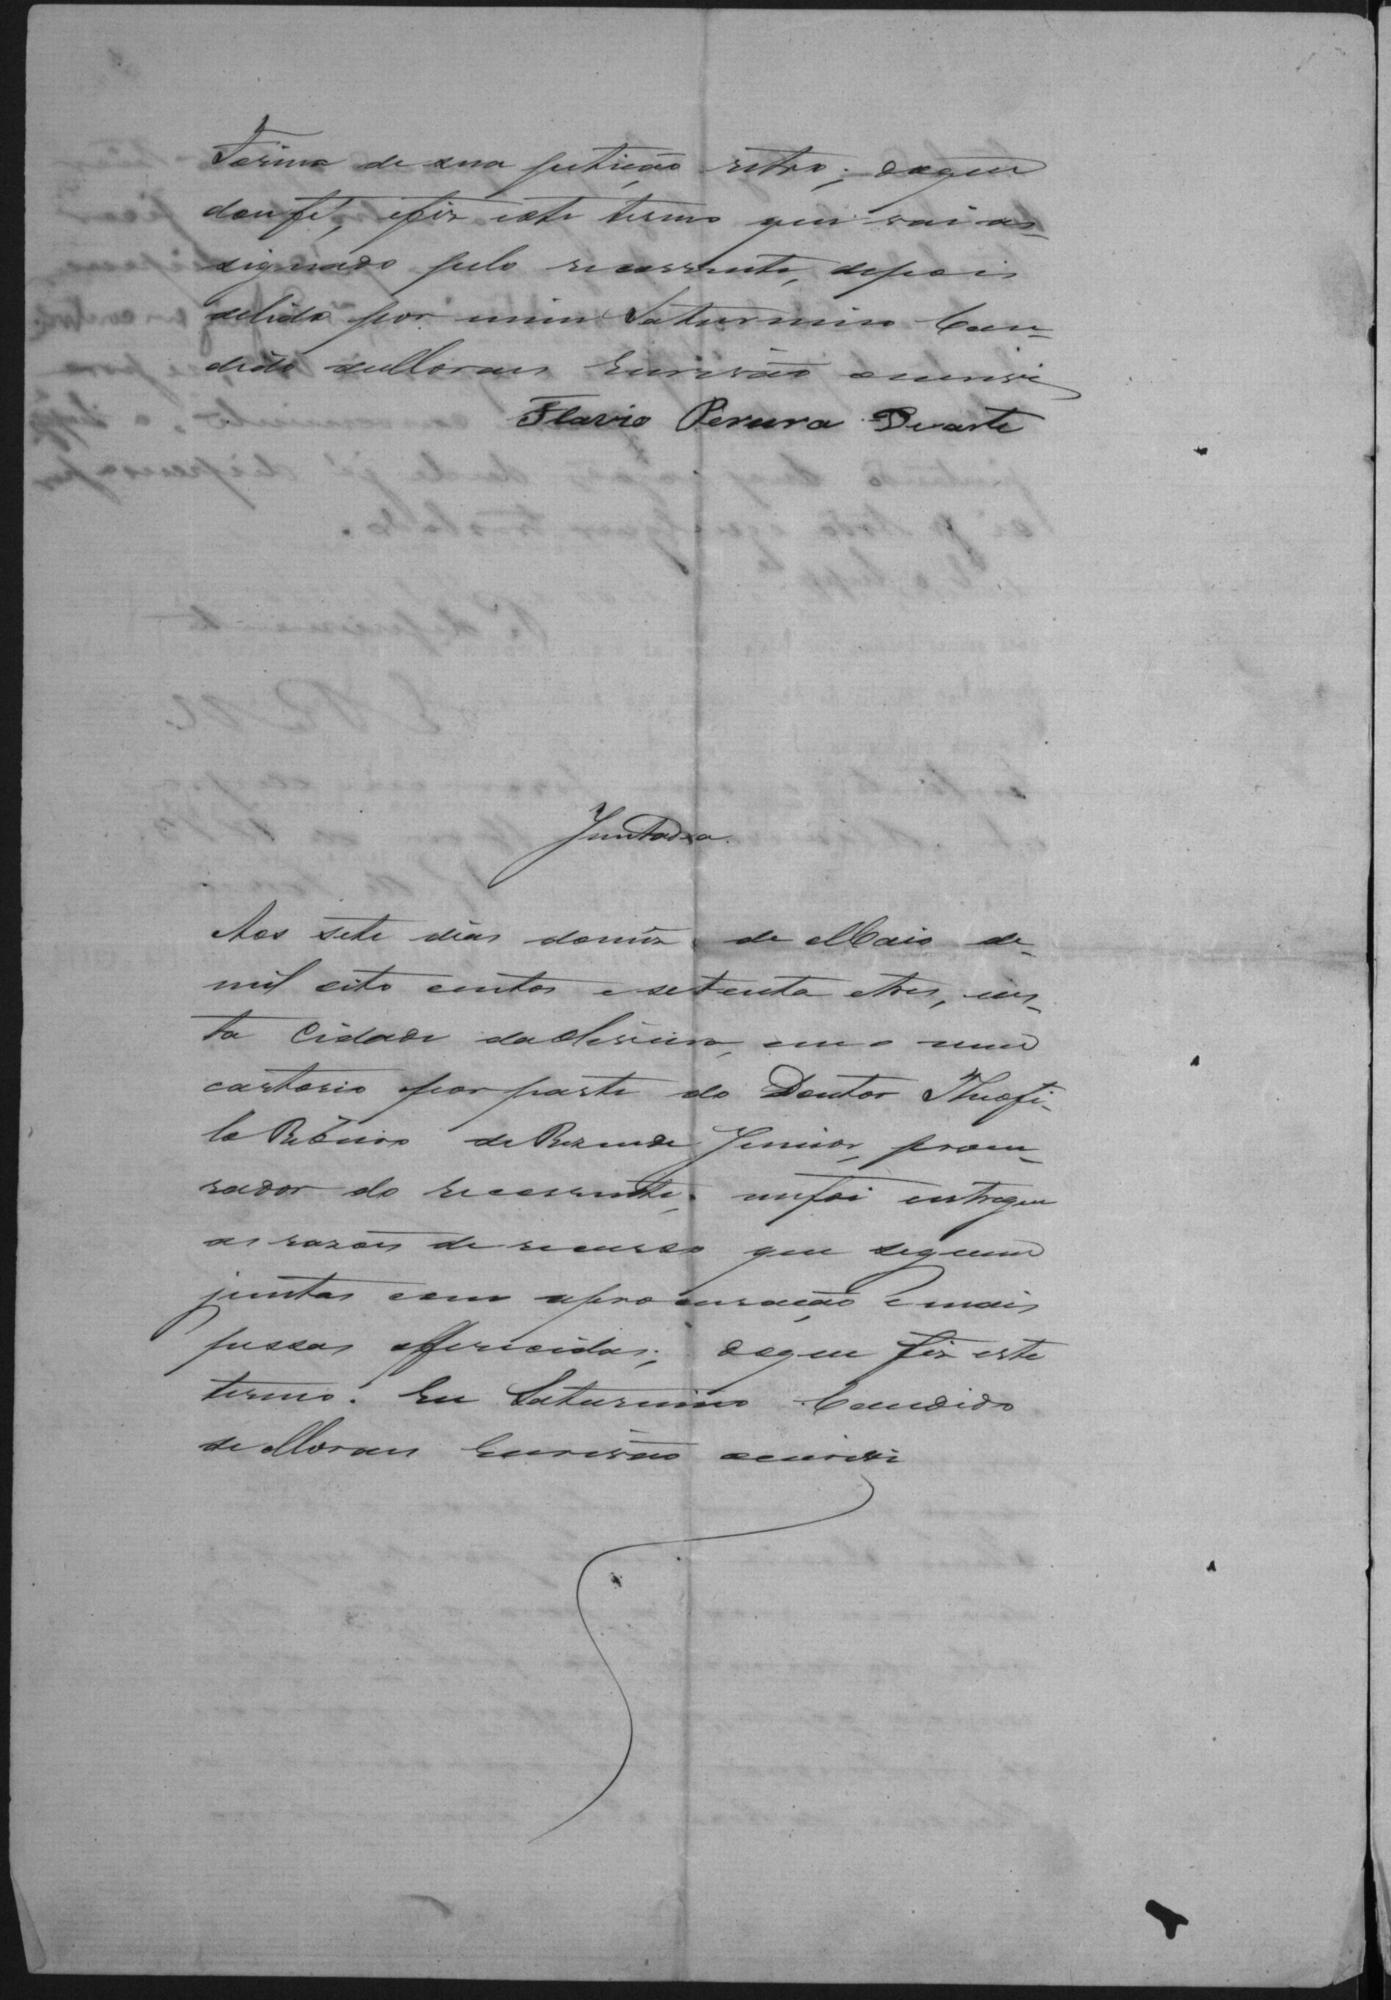 forma de sua petição retro; doque
dou fé, e fiz este termo que vai as-
signado pelo recorrente, depois
delido por mim Saturnino Can-
dido de Moraes Escrivão o escrivi
Flavio Pereira Duarte
Juntada
Aos sete dias do mez de Maio de
mil oito centos e setenta e tres, nes-
ta Cidade da em o meu
cartorio por parte do Doutor Theofi-
lo Ribeiro de Rezende Junior, procu-
rador do recorrente, me foi entregue
as razões de recurso que seguem
juntas com a procuração e mais
pessas offerecidas; doque fiz este
termo. Eu Saturnino Candido
de Moraes Escrivão o escrivi